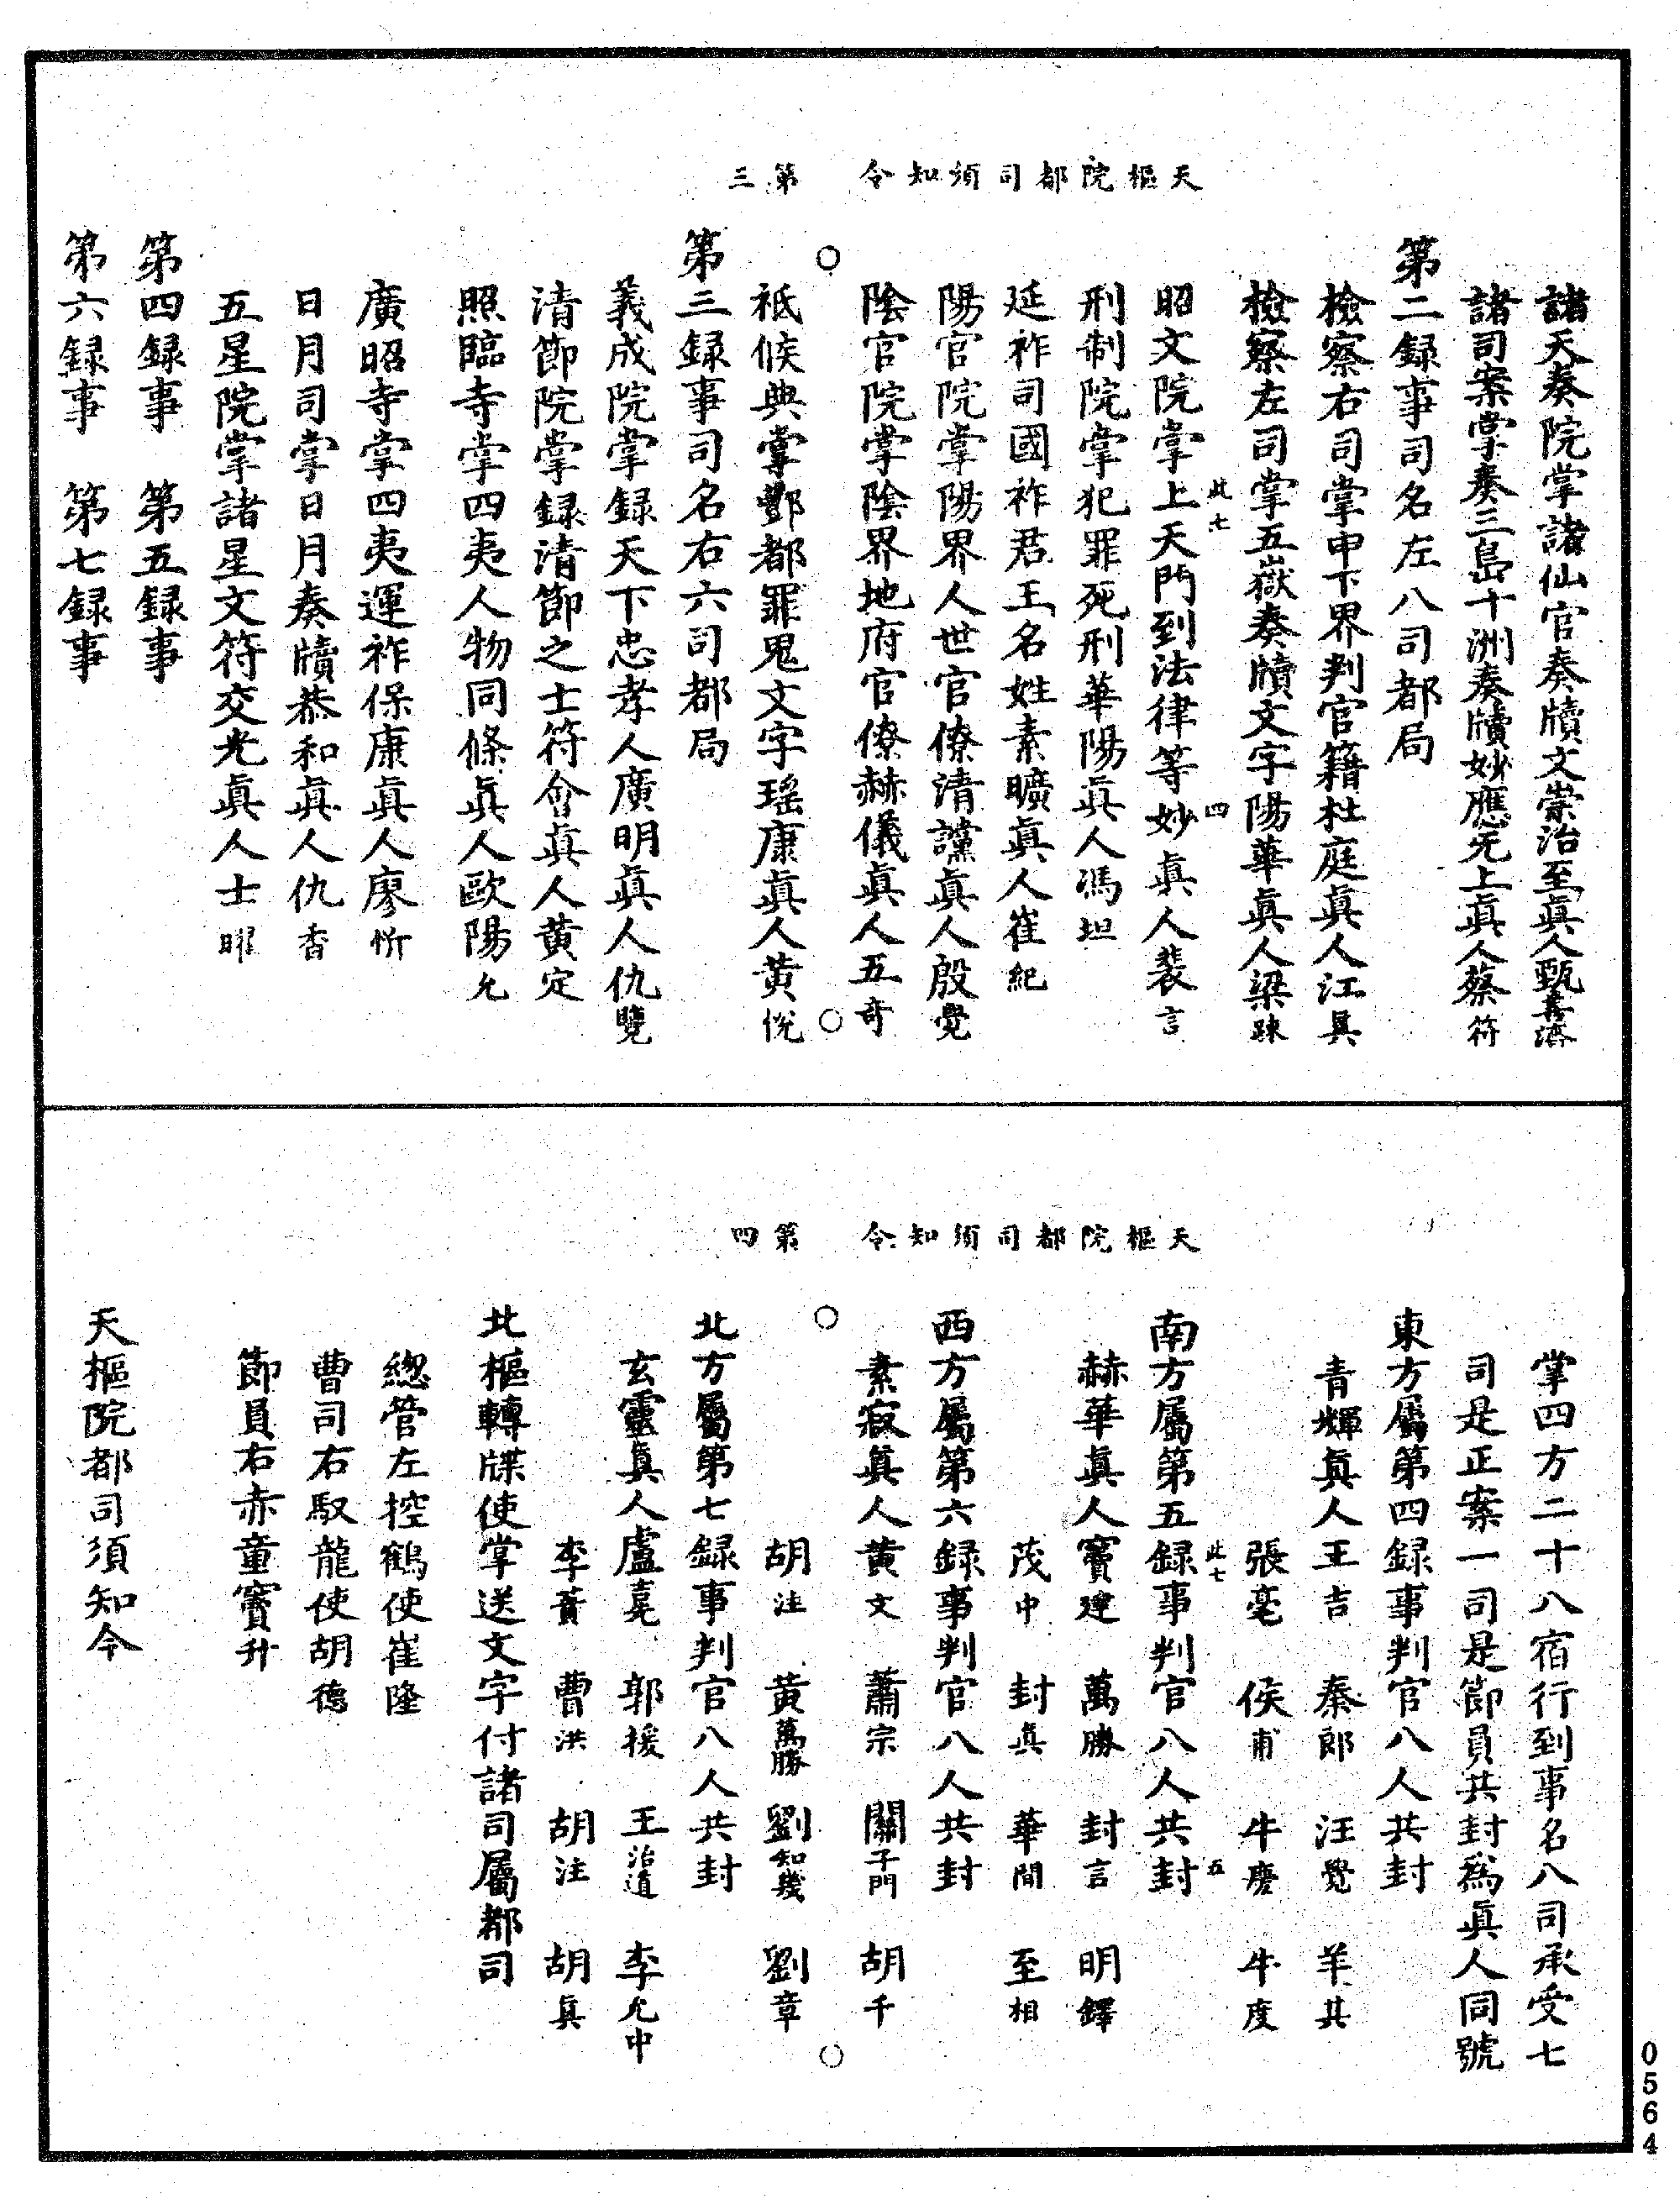 天樞院都司須知令　第三
諸天奏院掌諸仙官奏牘文崇治至眞人甄善濟
諸司案掌奏三島十洲奏牘妙應无上眞人蔡符
第二録事司名左八司都局
檢察右司掌申下界判官籍杜庭眞人江具
檢察左司掌五嶽奏牘文字陽華眞人梁踈
此七　四
昭文院掌上天門到法律等妙眞人裴言
刑制院掌犯罪死刑華陽眞人馮坦
延祚司國祚君王名姓素曠眞人崔紀
陽官院掌陽界人世官僚清讜眞人殷覺
陰官院掌陰界地府官僚赫儀眞人五奇
祇候典掌酆都罪鬼文字瑤康眞人黄悅
第三録事司名右六司都局
義成院掌録天下忠孝人廣明眞人仇覽
清節院掌録清節之士符會眞人黄定
照臨寺掌四夷人物同條眞人歐陽允
廣昭寺掌四夷運祚保康眞人廖忻
日月司掌日月奏牘恭和眞人仇香
五星院掌諸星文符交光眞人士
第四録事　第五録事
第六録事　第七録事
天樞院都司須知令　第四
掌四方二十八宿行到事名八司承受七
司是正案一司是節員共封爲眞人同號
東方屬第四録事判官八人共封
青輝眞人王吉　秦郎　汪覺　羊其
張亳　侯甫　牛磨　牛度
此七　五
南方屬第五録事判官八人共封
赫華眞人竇建　萬勝　封言　明鐸
茂中　封眞　華間　至相
西方屬第六録事判官八人共封
素寂眞人黄文　蕭宗　關子門　胡千
胡注　黄萬勝　劉知幾　劉章
北方屬第七録事判官八人共封
玄靈眞人盧堯　郭援　王治道　李允中
李蕡　曹洪　胡注　胡眞
北樞轉牒使掌送文字付諸司屬都司
總管左控鶴使崔隆
曹司右馭龍使胡德
節員右赤童竇升
天樞院都司須知令
0564